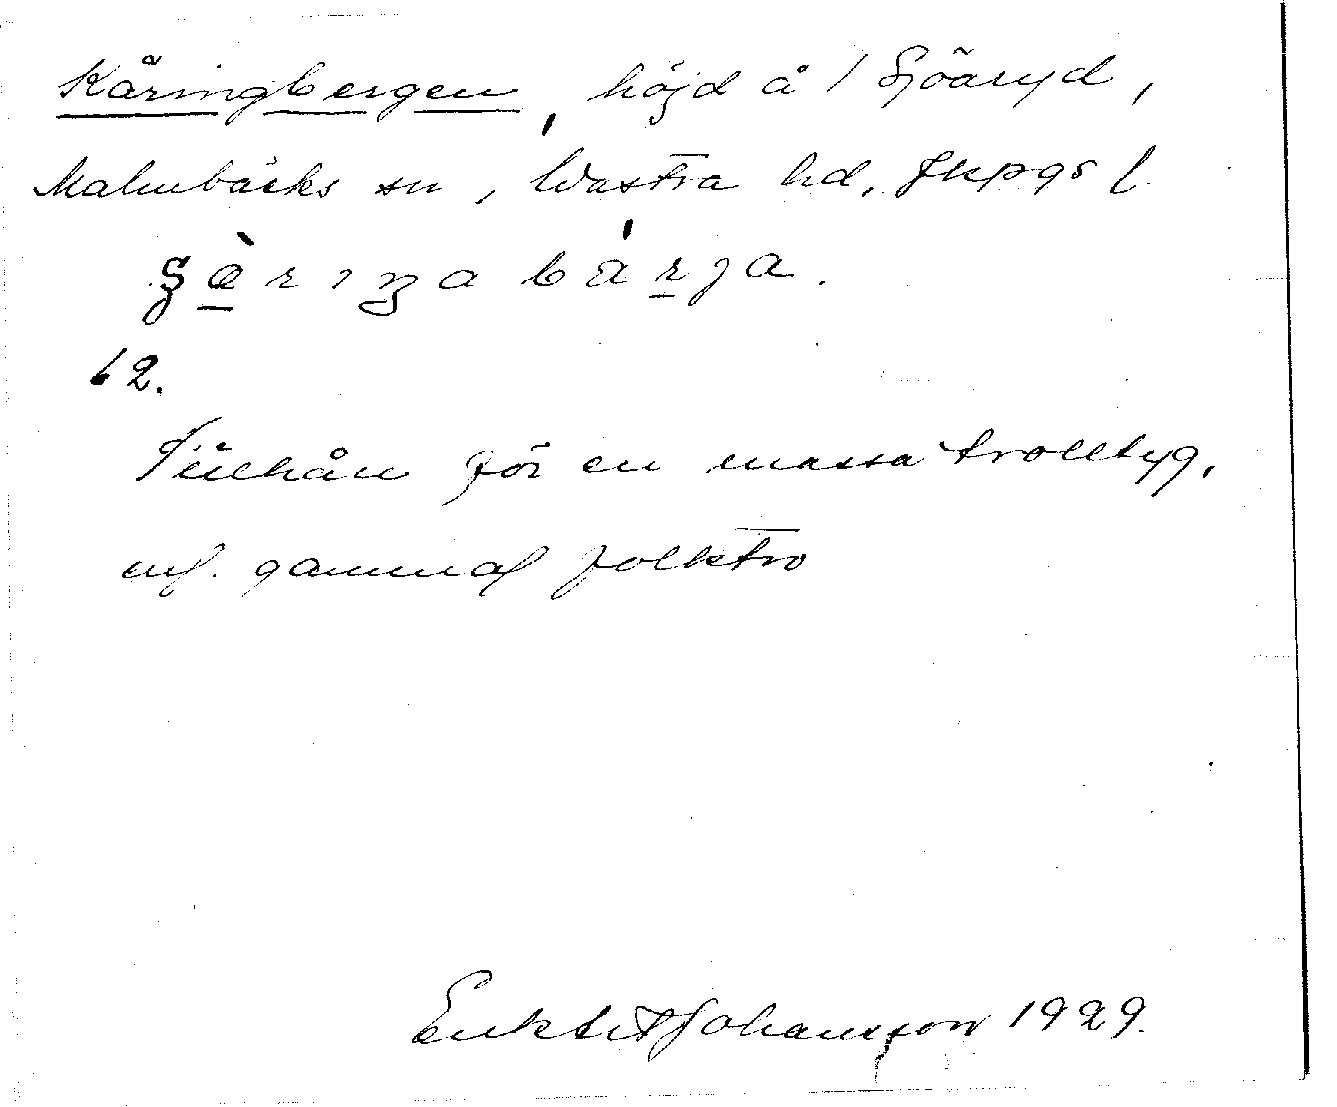 Käringbergen, höjd å 1 Sjöaryd,
Malmbäcks sn, Västra hd, Jkpgs l.
62.
Tillhåll för en massa trolltyg,
enl. gammal folktro
Johansson 1929.